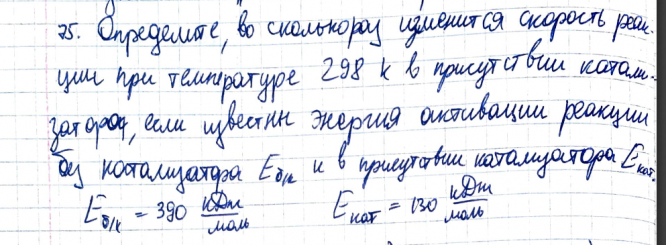 75. Определите, во сколько раз изменится скорость реак-
ции при температуре 298 К в присутствии катали-
затора, если известны энергия активации реакции
без катализатора E б/к и в присутствии катализатора E кат.
E б/к = 390 кДж/моль E кат = 130 кДж/моль